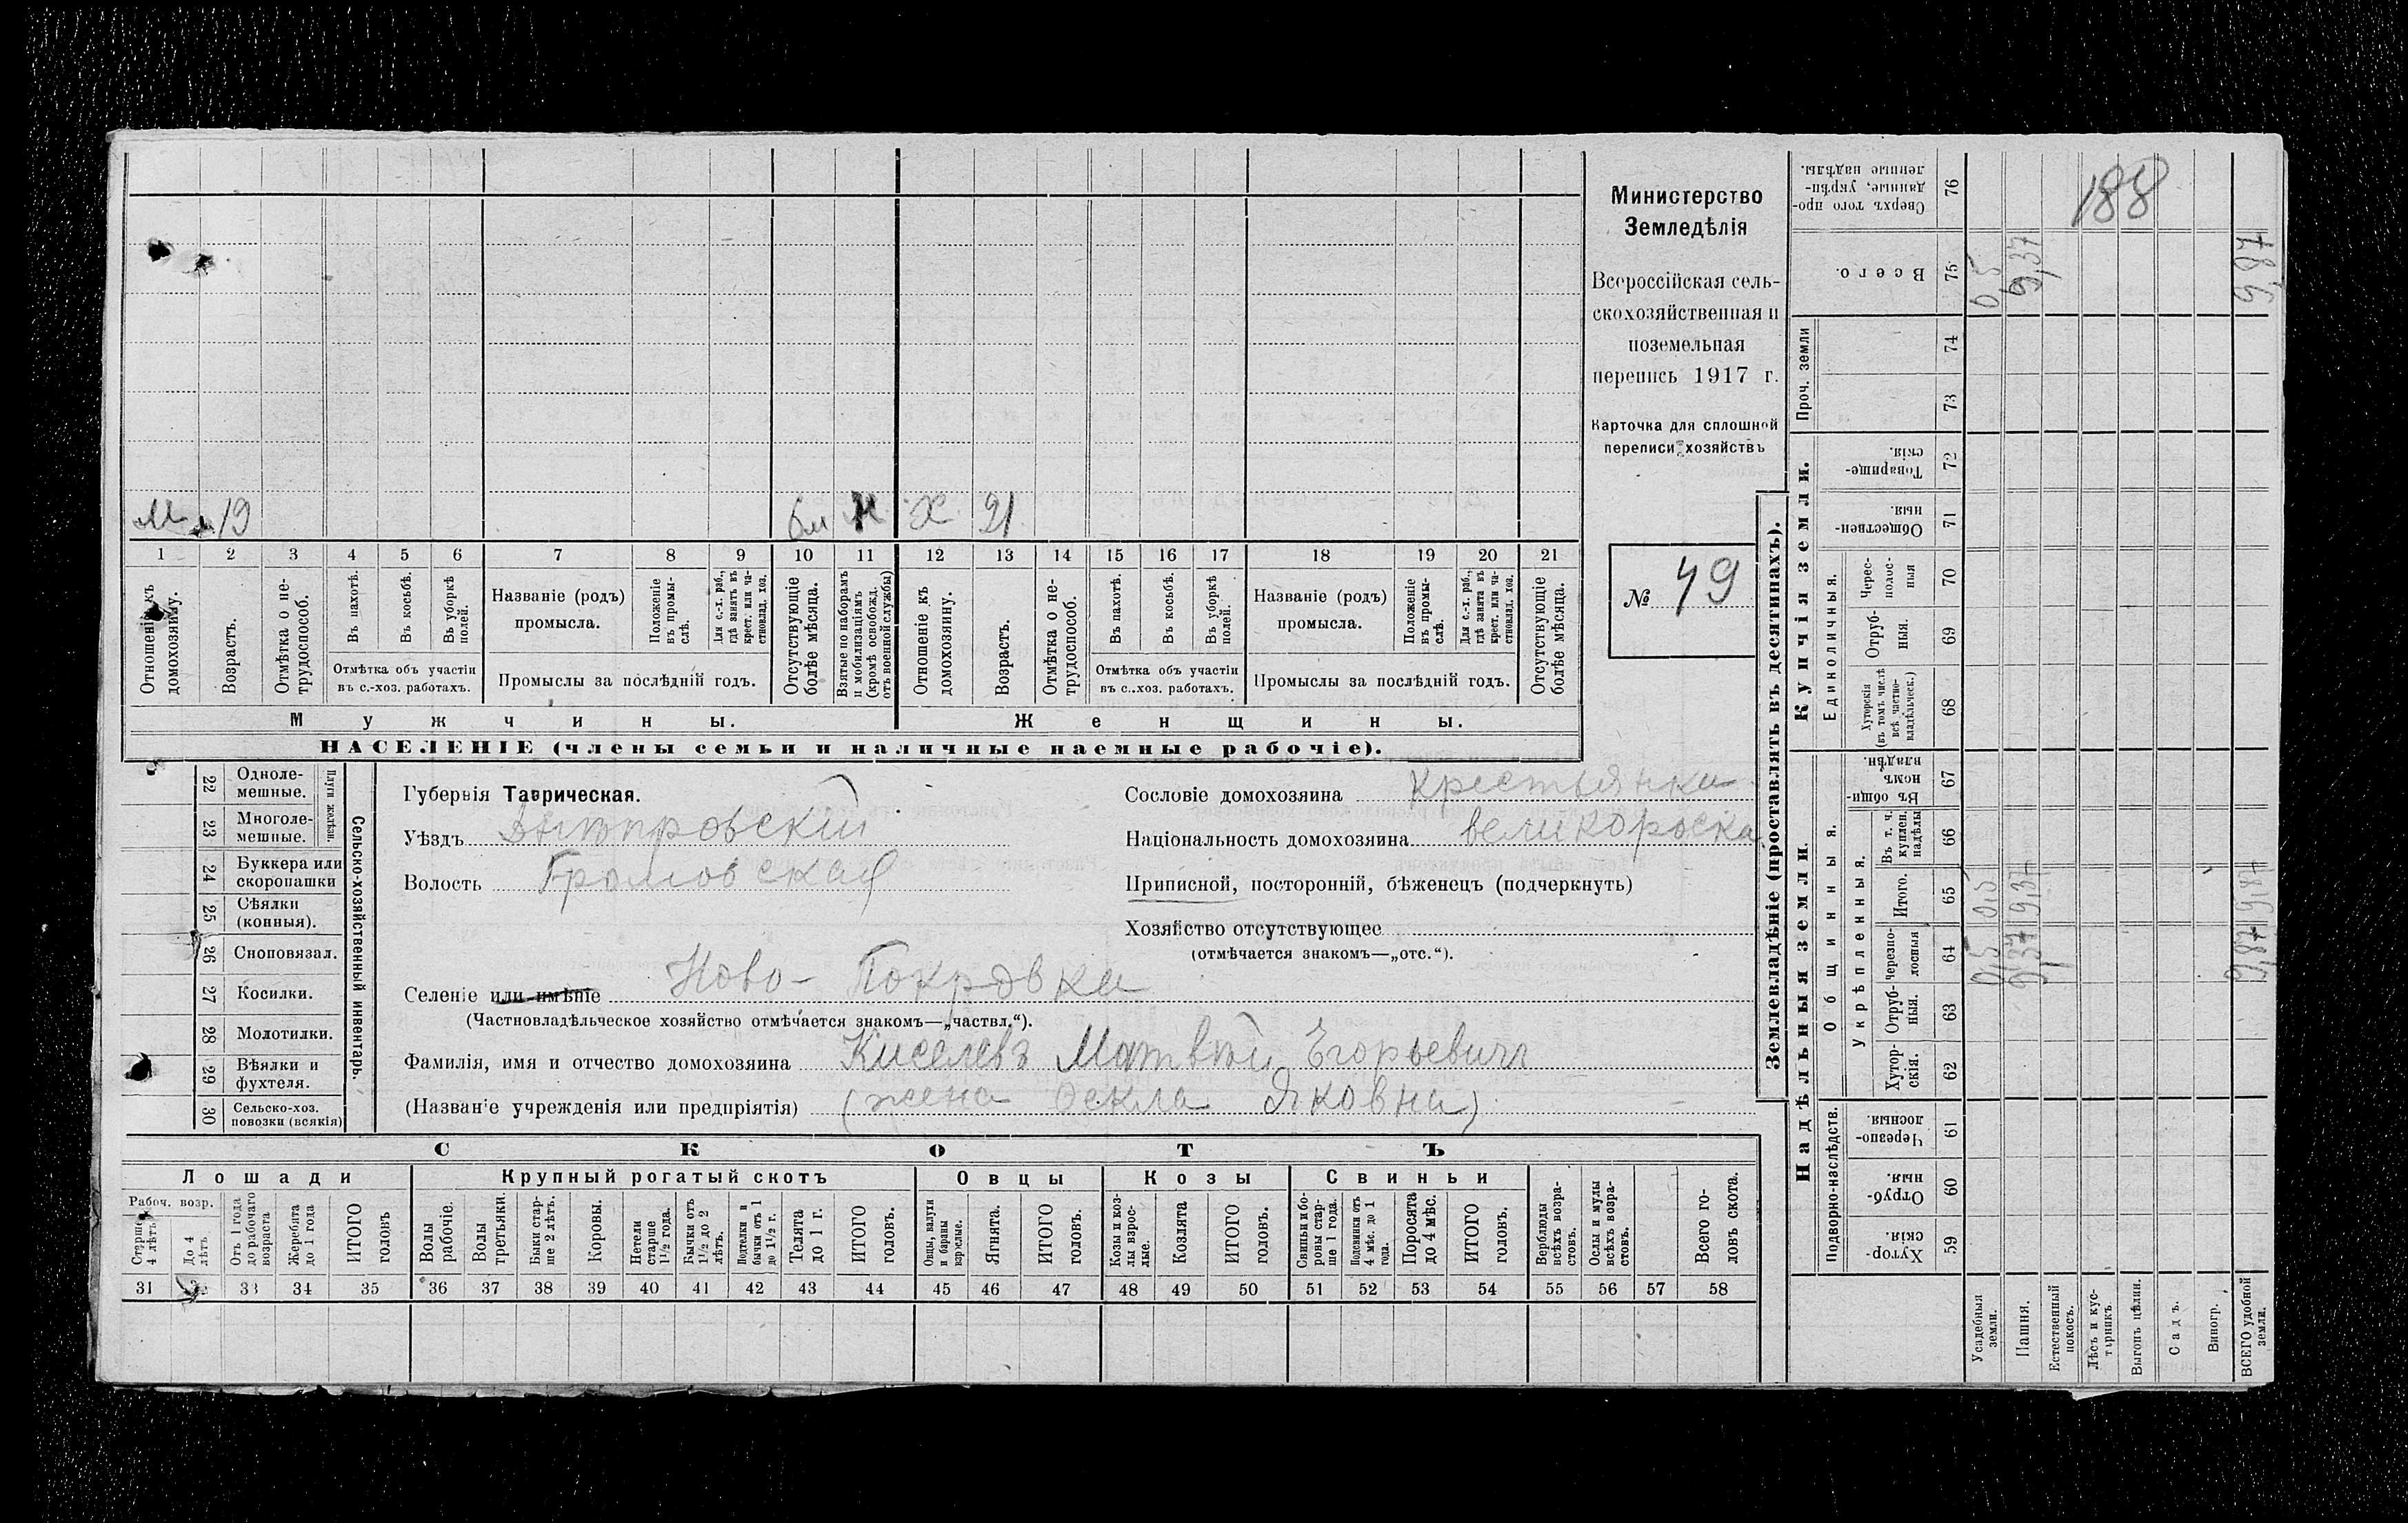 Министерство
Земледѣлія
Всероссійская сель-
скохозяйственная и
поземельная
перепись 1917 г.
Карточка для сплошной
переписи хозяйствъ
№ 49
188
М 19 бм Ж Х 21
1 2 3 4 5 6 7 8 9 10 11 12 13 14 15 16 17 18 19 20 21
Отношеніе къ домохозяину.
Возрастъ.
Отмѣтка о не-трудоспособ.
Въ пахотѣ.
Въ косьбѣ.
Въ уборкѣ полей.
Отмѣтка объ участіи
въ с.-хоз. работахъ.
Названіе (родъ)
промысла.
Положеніе въ промы-слѣ.
Для с.-х. раб., гдѣ занятъ въ крест. или ча-стновлад. хоз.
Промыслы за послѣдній годъ.
Отсутствующіе болѣе мѣсяца.
Взятые по наборамъ и мобилизаціямъ (кромѣ освобожд. отъ военной службы)
Отношеніе къ домохозяину.
Возрастъ.
Отмѣтка о не-трудоспособ.
Въ пахотѣ.
Въ косьбѣ.
Въ уборкѣ полей.
Отмѣтка объ участіи
въ с.-хоз. работахъ.
Названіе (родъ)
промысла.
Положеніе въ промы-слѣ.
Для с.-х. раб., гдѣ занята въ крест. или ча-стновлад. хоз.
Промыслы за послѣдній годъ.
Отсутствующіе болѣе мѣсяца.
Мужчины. Женщины.
НАСЕЛЕНІЕ (члены семьи и наличные наемные рабочіе).
Сельско-хозяйственный инвентарь.
Плуги желѣзн.
22 Одноле-мешные.
23 Многоле-мешные.
24 Буккера или скоропашки
25 Сѣялки (конныя).
26 Сноповязал.
27 Косилки.
28 Молотилки.
29 Вѣялки и фухтеля.
30 Сельско-хоз. повозки (всякія)
Губернія Таврическая.
Уѣздъ Днѣпровскій
Волость Громовская
Селеніе или имѣніе Ново-Покровка
(Частновладѣльческое хозяйство отмѣчается знакомъ—„частвл.“).
Фамилія, имя и отчество домохозяина Киселевъ Матвѣй Егорьевичъ
(Названіе учрежденія или предпріятія) (жена Фекла Яковна)
Сословіе домохозяина крестьянка
Національность домохозяина великороска
Приписной, посторонній, бѣженецъ (подчеркнуть)
Хозяйство отсутствующее
(отмѣчается знакомъ—„отс.“).
СКОТЪ
Лошади Крупный рогатый скотъ Овцы Козы Свиньи
Рабоч. возр.
Старше 4 лѣтъ
До 4 лѣтъ
Отъ 1 года до рабочаго возраста
Жеребята до 1 года
ИТОГО головъ
Волы рабочіе.
Волы третьяки.
Быки стар-ше 2 лѣтъ.
Коровы.
Нетели старше 1½ года.
Бычки отъ 1½ до 2 лѣтъ.
Подтелки и бычки отъ 1 до 1½ г.
Телята до 1 г.
ИТОГО головъ.
Овцы, валухи и бараны взрослые.
Ягнята.
ИТОГО головъ.
Козы и коз-лы взрос-лые.
Козлята
ИТОГО головъ.
Свиньи и бо-ровы стар-ше 1 года.
Подсвинки отъ 4 мѣс. до 1 года.
Поросята до 4 мѣс.
ИТОГО головъ.
Верблюды всѣхъ возра-стовъ.
Ослы и мулы всѣхъ возра-стовъ.
Всего го-ловъ скота.
31 32 33 34 35 36 37 38 39 40 41 42 43 44 45 46 47 48 49 50 51 52 53 54 55 56 57 58
Землевладѣніе (проставлять въ десятинахъ).
Надѣльныя земли.
Подворно-наслѣдств.
Хутор-скія. 59
Отруб-ныя. 60
Черезпо-лосныя 61
Общинныя.
Укрѣпленныя.
Хутор-скія. 62
Отруб-ныя. 63
Черезпо-лосныя 64
Итого. 65
Въ т. ч. куплен. надѣлы 66
Въ общин-номъ владѣн. 67
Купчія земли.
Единоличныя.
Хуторскія (въ томъ числѣ всѣ частно-владѣльческ.) 68
Отруб-ныя. 69
Черес-полос-ныя 70
Обществен-ныя. 71
Товарище-скія. 72
Проч. земли
73 74
Всего. 75
Сверхъ того про-данные, укрѣп-ленные надѣлы. 76
Усадебныя земли. 0,5 0,5 0,5
Пашня. 9,37 9,37 9,37
Естественный покосъ.
Лѣсъ и кус-тарникъ.
Выгонъ цѣлин.
Садъ.
Виногр.
ВСЕГО удобной земли. 9,87 9,87 9,87